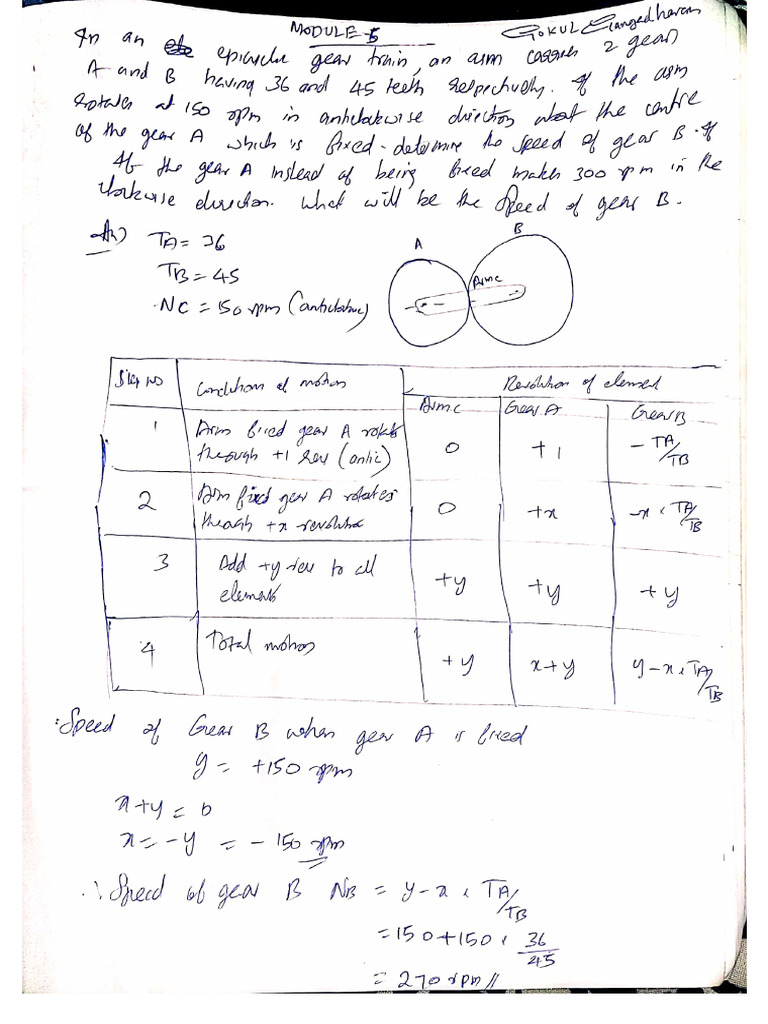 MODULE-5
GOKUL Gangadharan
In an epicyclic gear train, an arm carries 2 gears
A and B having 36 and 45 teeth respectively. If the arm
rotates at 150 rpm in anticlockwise direction about the centre
of the gear A which is fixed. determine the speed of gear B. If
If the gear A instead of being fixed makes 300 rpm in the
clockwise direction. What will be the speed of gear B.
Ans) TA = 36
TB = 45
NC = 150 rpm (anticlockwise)
A
B
Arm C
Step NO
Conditions of motion
Revolution of element
Arm C
Gear A
Gear B
1
Arm fixed gear A rotates
through +1 rev (antic)
0
+1
- TA/TB
2
Arm fixed gear A rotates
through +x revolution
0
+x
-x × TA/TB
3
Add +y rev to all
elements
+y
+y
+y
4
Total motion
+y
x+y
y-x × TA/TB
∴ Speed of Gear B when gear A is fixed
y = +150 rpm
x+y = 0
x = -y = -150 rpm
∴ Speed of gear B NB = y-x × TA/TB
= 150 + 150 × 36/45
= 270 rpm //